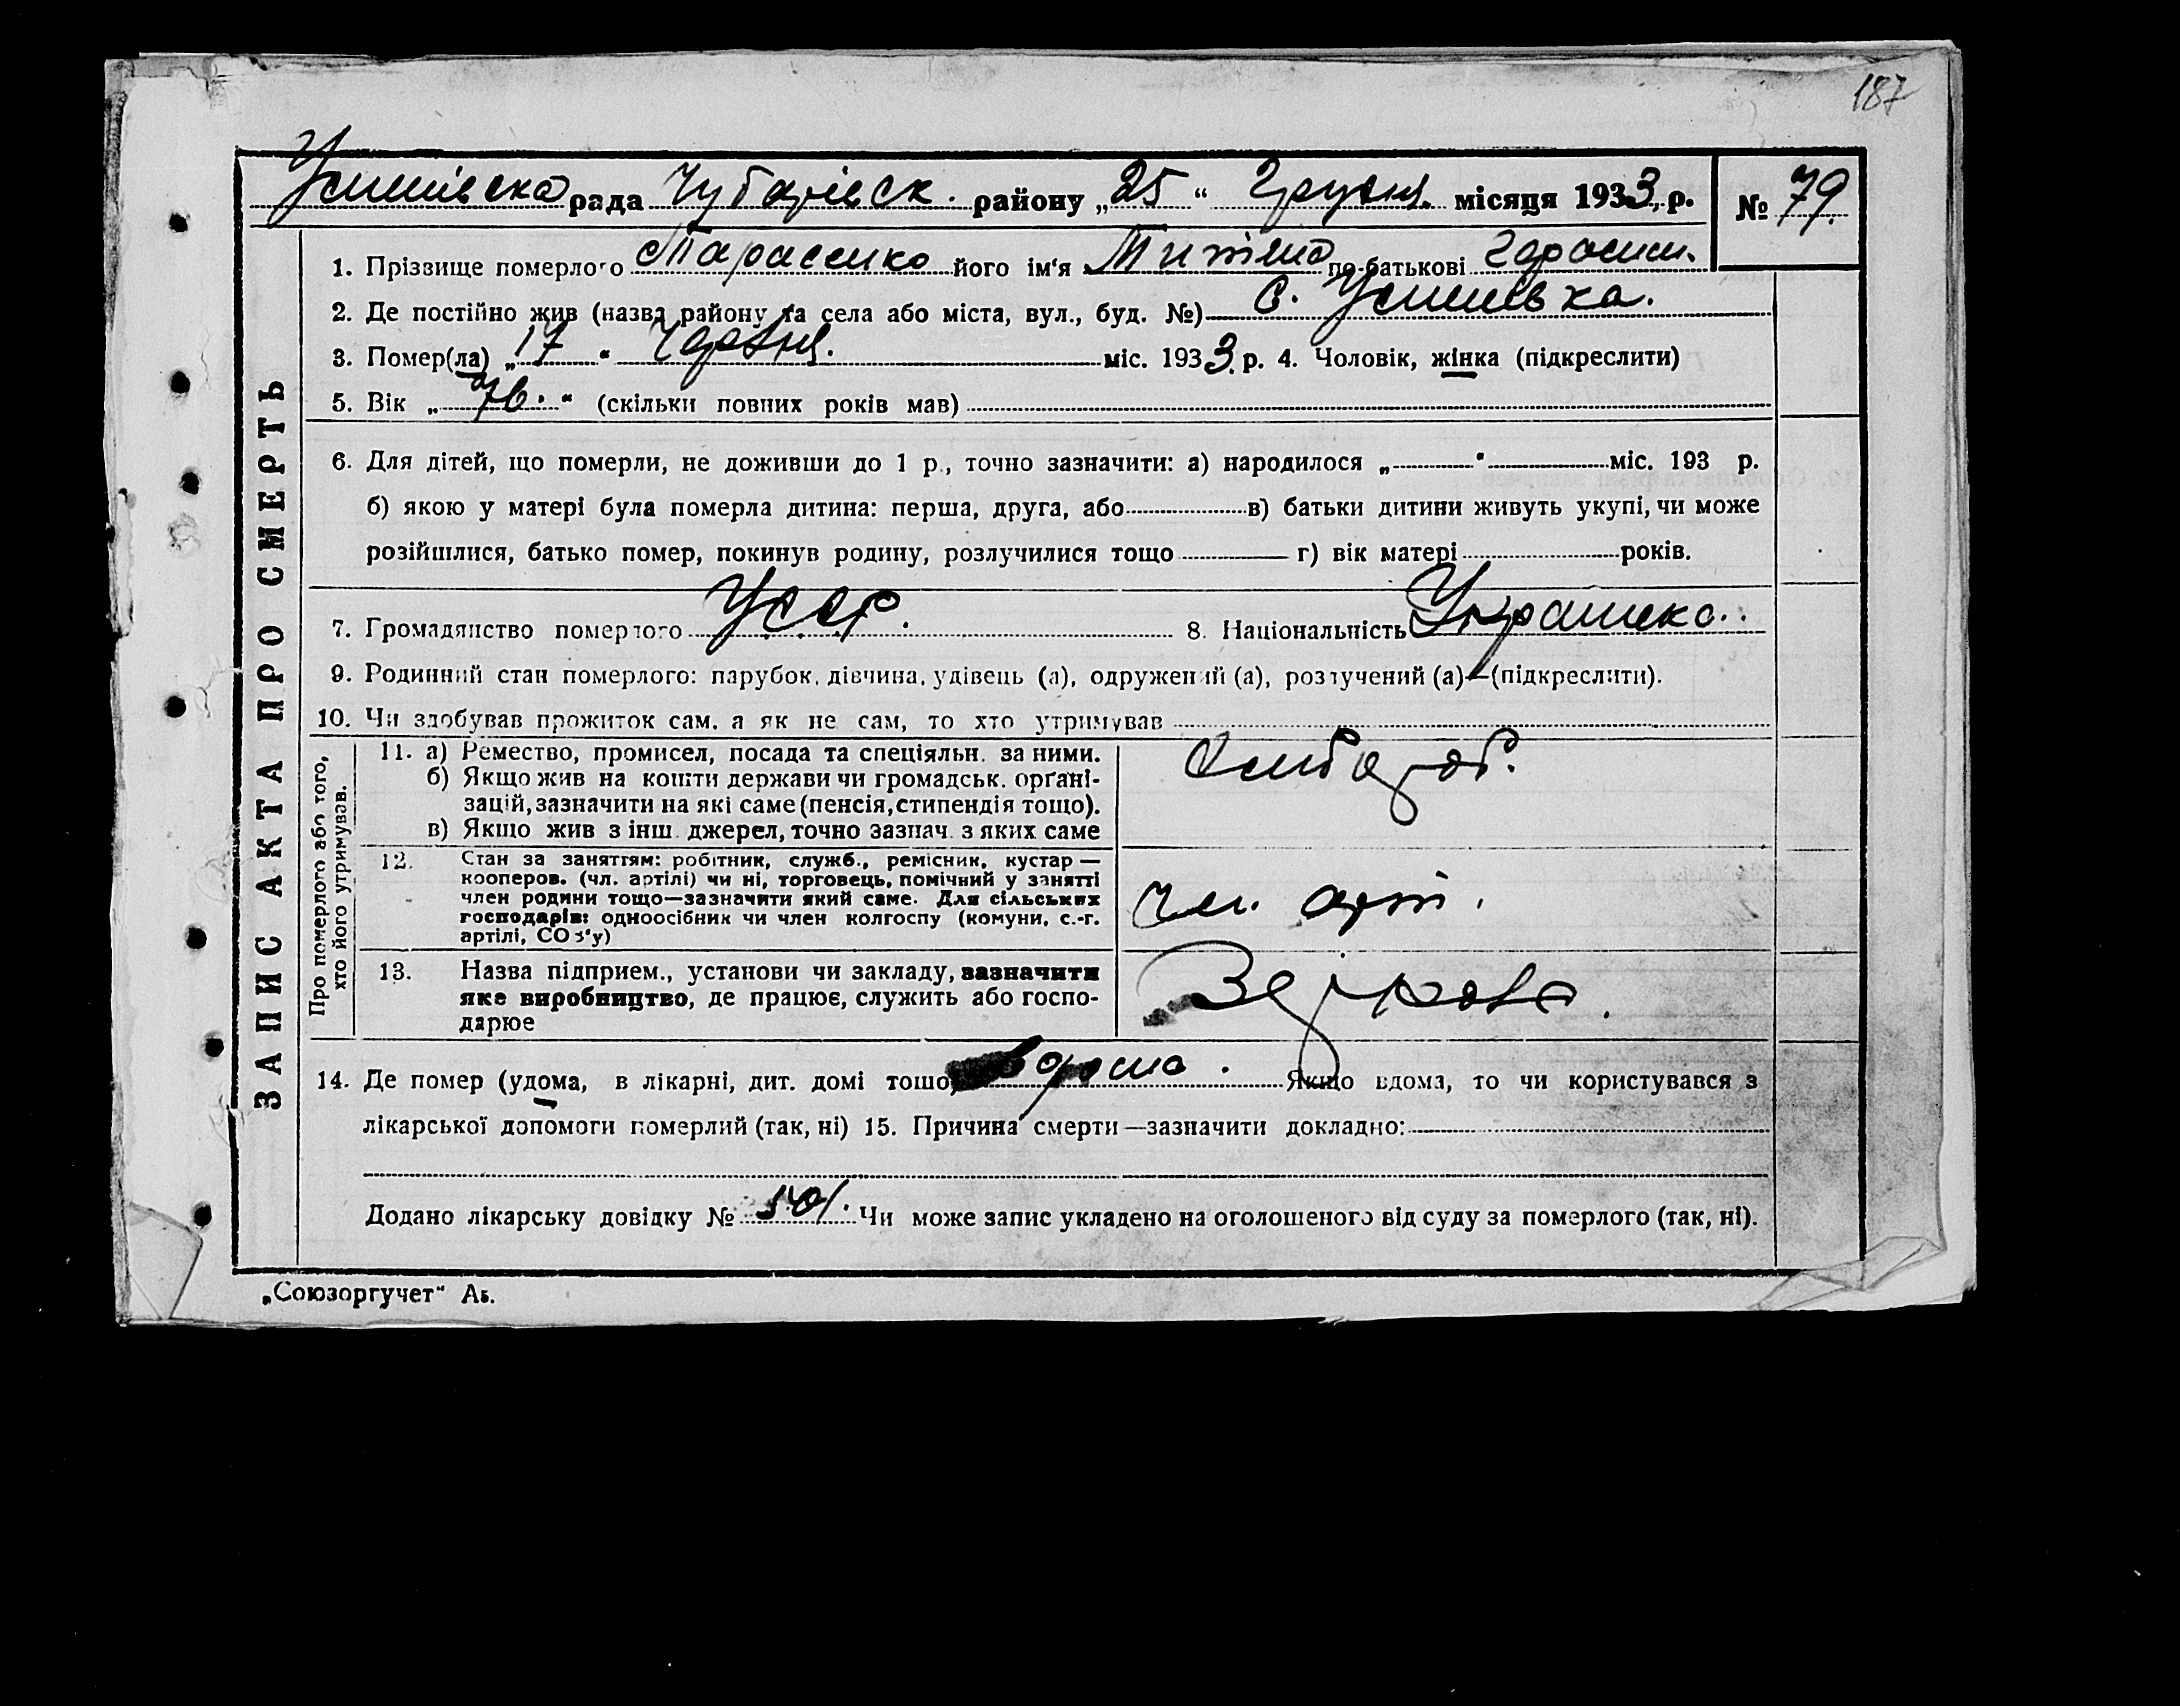 187
Успенівська рада Чубарівск. району „25“ Грудня місяця 1933 р. № 79.
1. Прізвище померлого Тарасенко його ім'я по-батькові Гарасим.
2. Де постійно жив (назва району та села або міста, вул., буд. №) с. Успенівка.
3. Помер(ла) „17“ міс. 1933 р. 4. Чоловік, жінка (підкреслити)
5. Вік „ “ (скільки повних років мав)
6. Для дітей, що померли, не доживши до 1 р., точно зазначити: а) народилося „ “ міс. 193 р.
б) якою у матері була померла дитина: перша, друга, або в) батьки дитини живуть укупі, чи може
розійшлися, батько помер, покинув родину, розлучилися тощо г) вік матері років.
7. Громадянство померлого УССР. 8. Національність
9. Родинний стан померлого: парубок, дівчина, удівець (а), одружений (а), розлучений (а)—(підкреслити).
10. Чи здобував прожиток сам, а як не сам, то хто утримував
ЗАПИС АКТА ПРО СМЕРТЬ
Про померлого або того,
хто його утримував.
11. а) Ремество, промисел, посада та спеціяльн. за ними.
б) Якщо жив на кошти держави чи громадськ. орґані-
зацій, зазначити на які саме (пенсія, стипендія тощо).
в) Якщо жив з інш. джерел, точно зазнач. з яких саме
12. Стан за заняттям: робітник, служб., ремісник, кустар —
кооперов. (чл. артілі) чи ні, торговець, помічний у занятті
член родини тощо—зазначити який саме. Для сільських
господарів: одноосібник чи член колгоспу (комуни, с.-г.
артілі, СОЗ'у)
чл. арт.
13. Назва підприєм., установи чи закладу, зазначити
яке виробництво, де працює, служить або госпо-
дарює
14. Де помер (удома, в лікарні, дит. домі тошо) вдома. Якщо вдома, то чи користувався з
лікарської допомоги померлий (так, ні) 15. Причина смерти—зазначити докладно:
Додано лікарську довідку № Чи може запис укладено на оголошеного від суду за померлого (так, ні).
„Союзоргучет“ Аь.